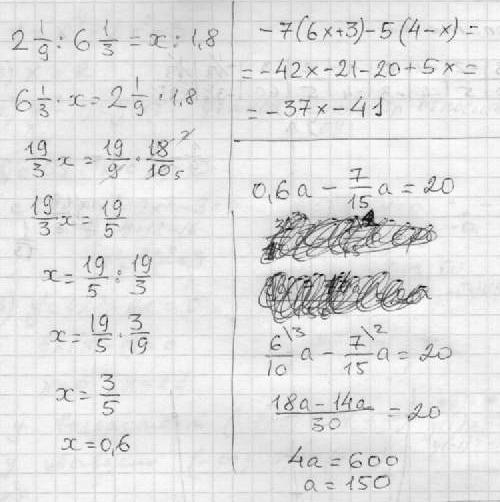 2 1/9 : 6 1/3 = x : 1,8
6 1/3 · x = 2 1/9 · 1,8
19/3 x = 19/9 · 18/10 2 5
19/3 x = 19/5
x = 19/5 : 19/3
x = 19/5 · 3/19
x = 3/5
x = 0,6
-7(6x+3)-5(4-x)=
=-42x-21-20+5x=
=-37x-41
0,6a - 7/15 a = 20
6\3/10 a - 7\2/15 a = 20
18a-14a/30 = 20
4a = 600
a = 150